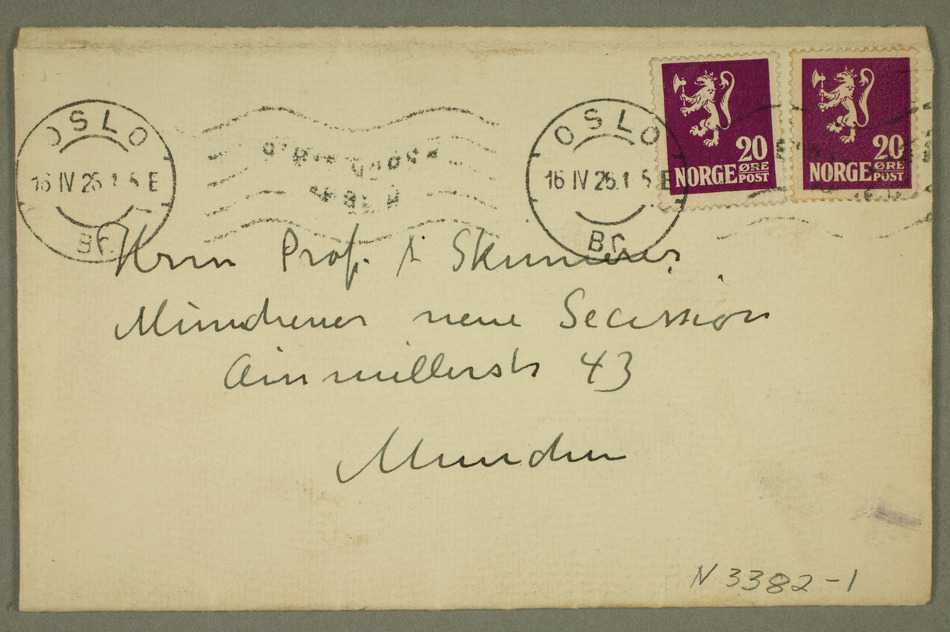 OSLO
16 IV 26.1 5 E
BR.
OSLO
16 IV 26.1 5 E
BR.
20
NORGE ØRE
POST
20
NORGE ØRE
POST
Herrn Prof.
Münchener neue Secession
Ainmillerstr 43
München
N 3382-1